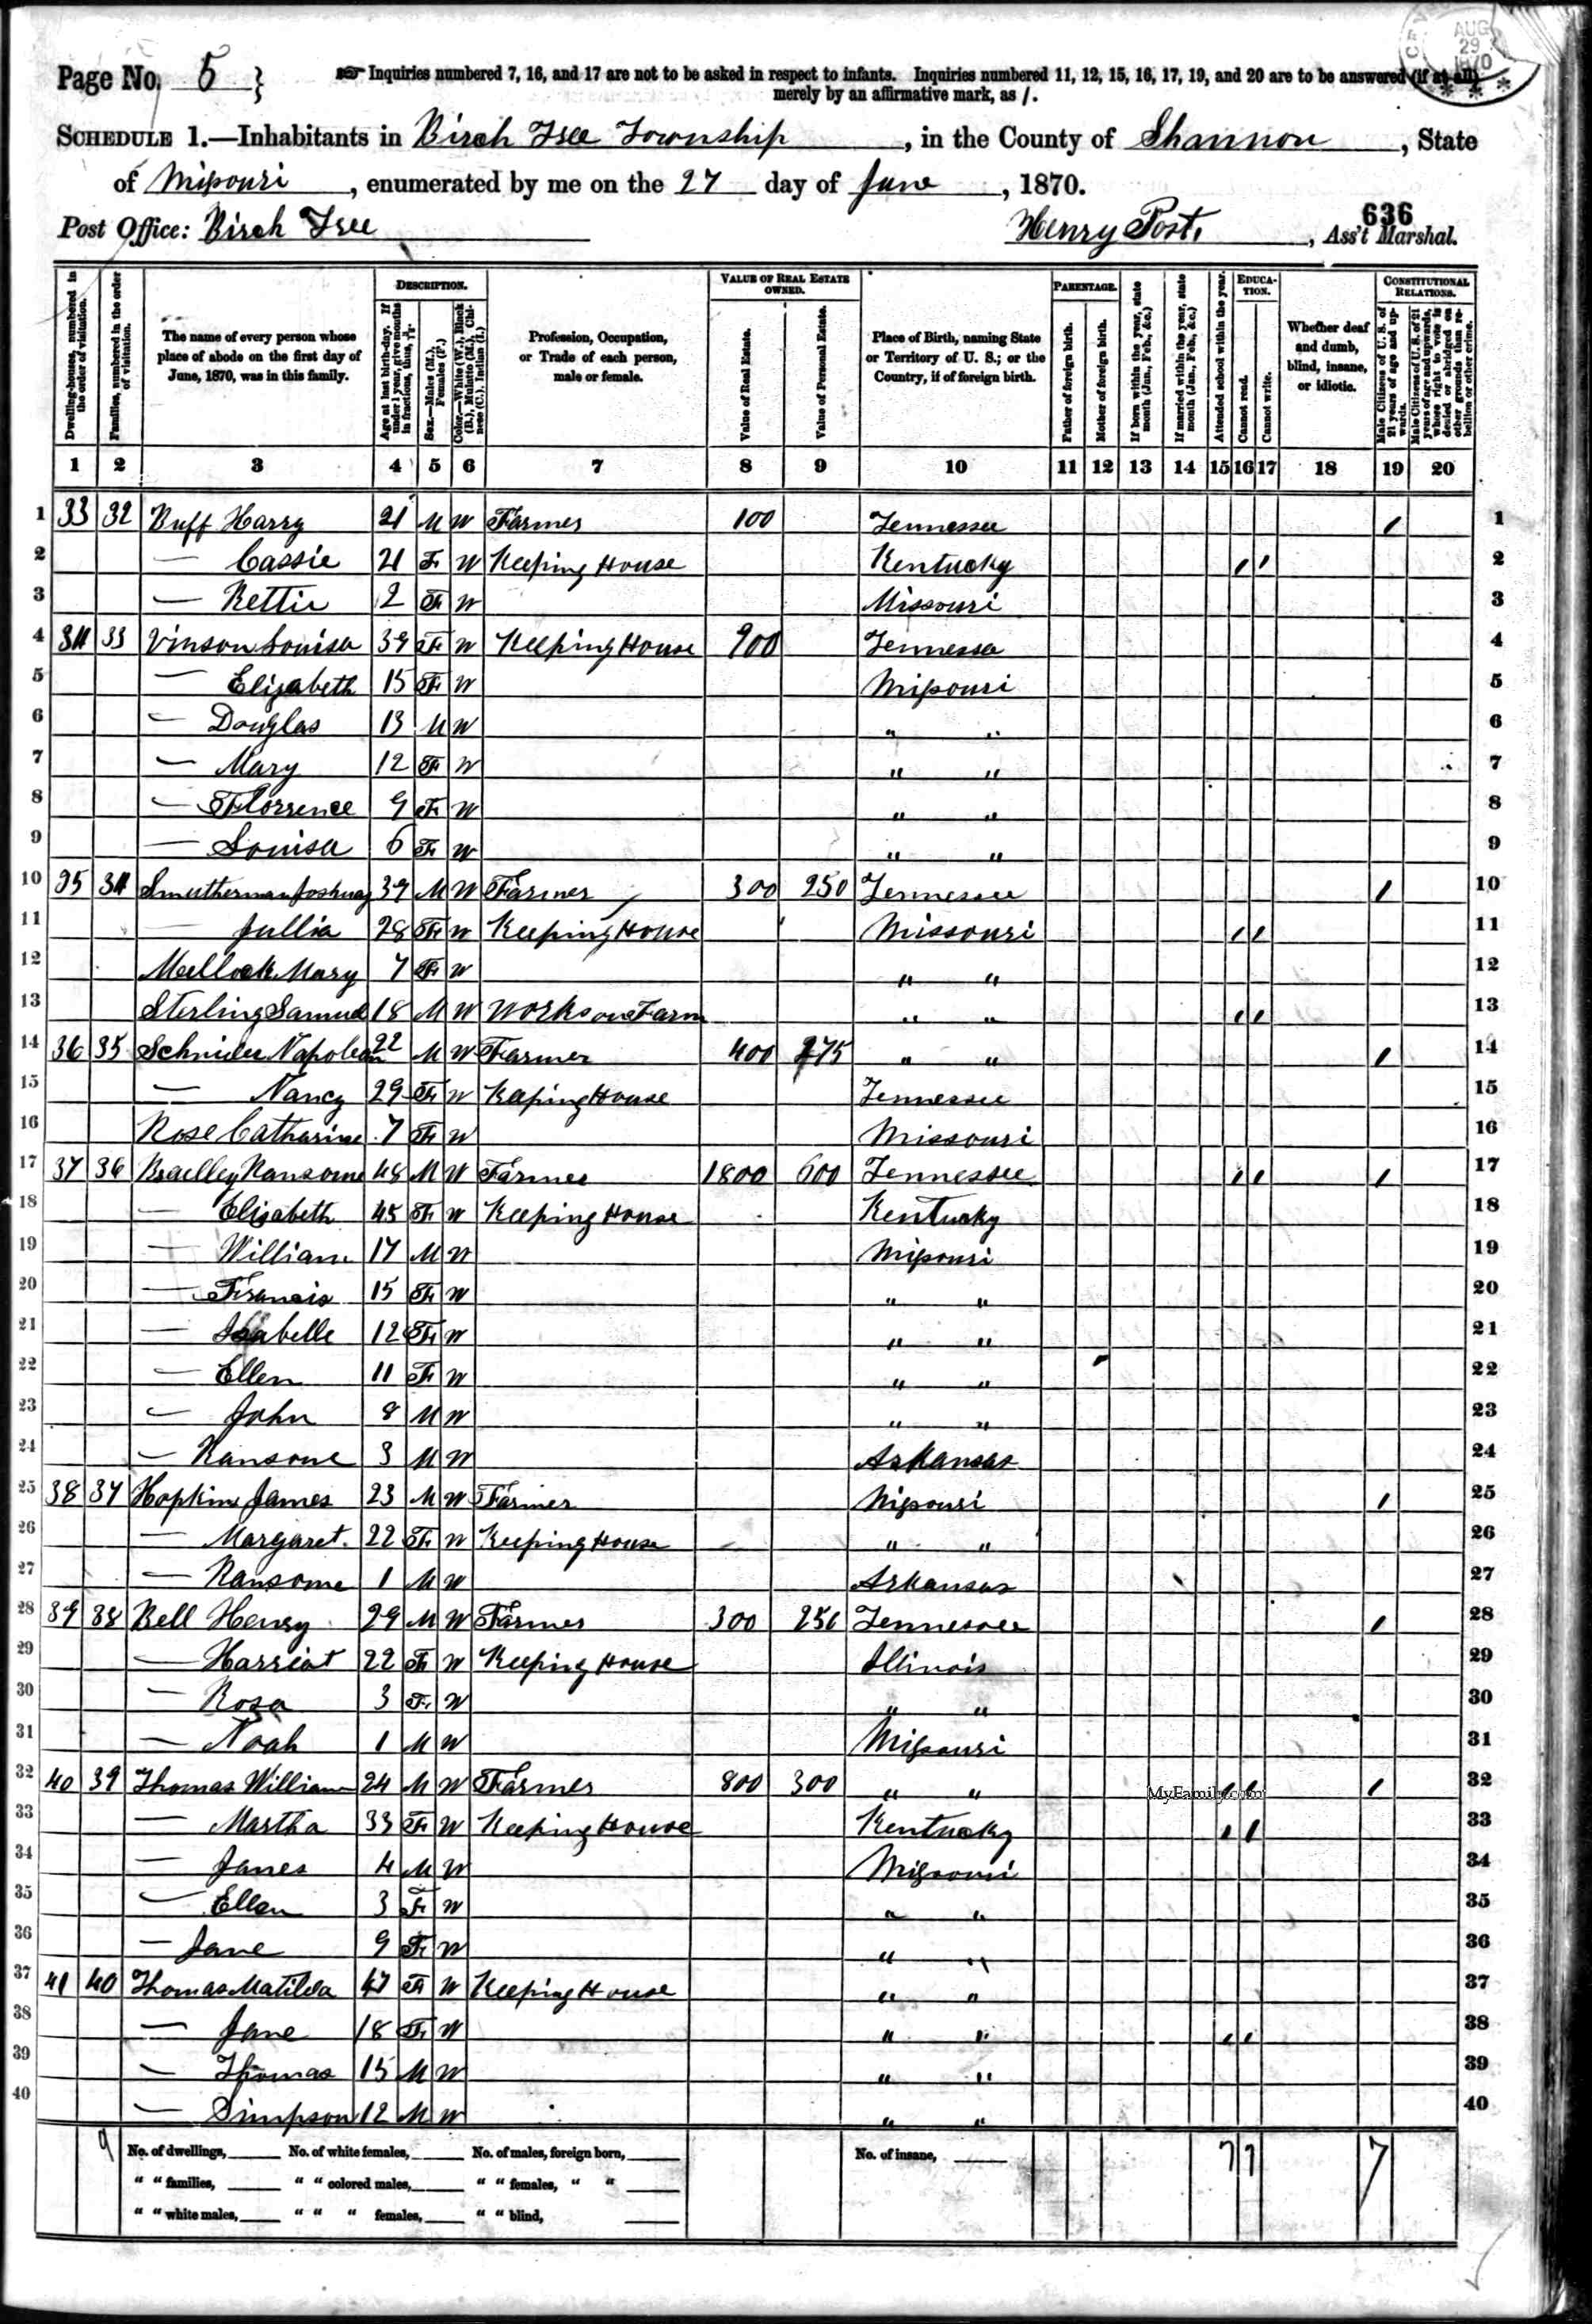 Page No. 5 } Inquiries numbered 7, 16, and 17 are not to be asked in respect to infants. Inquiries numbered 11, 12, 15, 16, 17, 19, and 20 are to be answered (if at all)
merely by an affirmative mark, as /.
AUG 29 1870
SCHEDULE 1.—Inhabitants in Birch Tree Township, in the County of Shannon, State
of Missouri, enumerated by me on the 27 day of June, 1870.
636
Post Office: Birch Tree Henry Post, Ass't Marshal.
Dwelling-houses, numbered in the order of visitation.
Families, numbered in the order of visitation.
The name of every person whose place of abode on the first day of June, 1870, was in this family.
DESCRIPTION.
Age at last birth-day. If under 1 year, give months in fractions, thus, 3/12.
Sex.—Males (M.), Females (F.)
Color.—White (W.), Black (B.), Mulatto (M.), Chinese (C.), Indian (I.)
Profession, Occupation, or Trade of each person, male or female.
VALUE OF REAL ESTATE OWNED.
Value of Real Estate.
Value of Personal Estate.
Place of Birth, naming State or Territory of U. S.; or the Country, if of foreign birth.
PARENTAGE.
Father of foreign birth.
Mother of foreign birth.
If born within the year, state month (Jan., Feb., &c.)
If married within the year, state month (Jan., Feb., &c.)
Attended school within the year.
EDUCATION.
Cannot read.
Cannot write.
Whether deaf and dumb, blind, insane, or idiotic.
CONSTITUTIONAL RELATIONS.
Male Citizens of U. S. of 21 years of age and upwards.
Male Citizens of U. S. of 21 years of age and upwards, whose right to vote is denied or abridged on other grounds than rebellion or other crime.
1 2 3 4 5 6 7 8 9 10 11 12 13 14 15 16 17 18 19 20
1 33 32 Buff Harry 21 M W Farmer 100 Tennessee / 1
2 — Cassie 21 F W Keeping House Kentucky / / 2
3 — Rettie 2 F W Missouri 3
4 34 33 Vinson Louisa 39 F W Keeping House 900 Tennessa 4
5 — Elizabeth 15 F W Missouri 5
6 — Douglas 13 M W " " 6
7 — Mary 12 F W " " 7
8 — Florrence 9 F W " " 8
9 — Louisa 6 F W " " 9
10 35 34 Smutherman Joshuay 39 M W Farmer 300 250 Tennessee / 10
11 — Jullia 28 F W Keeping House Missouri / / 11
12 Mary 7 F W " " 12
13 Sterling Samuel 18 M W Works on Farm " " / / 13
14 36 35 Schnider Napolean 22 M W Farmer 400 275 " " / 14
15 — Nancy 29 F W Keeping House Tennessee 15
16 Rose Catharine 7 F W Missouri 16
17 37 36 Bradley Ransome 48 M W Farmer 1800 600 Tennessee / / / 17
18 — Elizabeth 45 F W Keeping House Kentucky 18
19 — William 17 M W Missouri 19
20 — Francis 15 F W " " 20
21 — Isabelle 12 F W " " 21
22 — Ellen 11 F W " " 22
23 — John 8 M W " " 23
24 — Ransome 3 M W Arkansas 24
25 38 37 Hopkins James 23 M W Farmer Missouri / 25
26 — Margaret 22 F W Keeping House " " 26
27 — Ransome 1 M W Arkansas 27
28 39 38 Bell Henry 29 M W Farmer 300 250 Tennessee / 28
29 — Harriat 22 F W Keeping House Illinois 29
30 — Rosa 3 F W " " 30
31 — Noah 1 M W Missouri 31
32 40 39 Thomas William 24 M W Farmer 800 300 " " MyFamily.com / / / 32
33 — Martha 33 F W Keeping House Kentucky / / 33
34 — James 4 M W Missouri 34
35 — Ellen 3 F W " " 35
36 — Jane 9 F W " " 36
37 41 40 Thomas Matilda 47 F W Keeping House " " 37
38 — Jane 18 F W " " / / 38
39 — Thomas 15 M W " " 39
40 — Simpson 12 M W " " 40
9 No. of dwellings, No. of white females, No. of males, foreign born, No. of insane, 7 7 7
" " families, " " colored males, " " females, " "
" " white males, " " " females, " " blind,